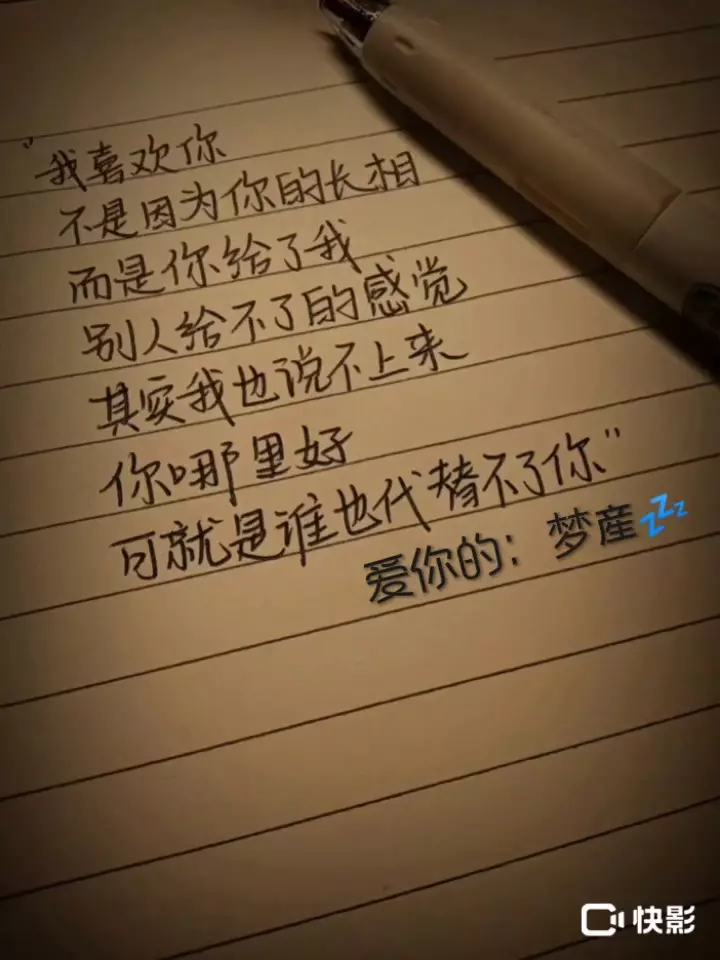 "我喜欢你
不是因为你的长相
而是你给了我
别人给不了的感觉
其实我也说不上来
你哪里好
可就是谁也代替不了你"
爱你的：梦産💤
快影